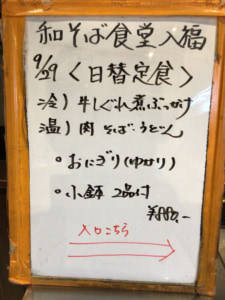 和そば食堂入福
9/29〈日替定食〉
冷）牛しぐれ煮ぶっかけ
温）肉そば・うどん
◦おにぎり(ゆかり)
◦小鉢 2品付
入口こちら